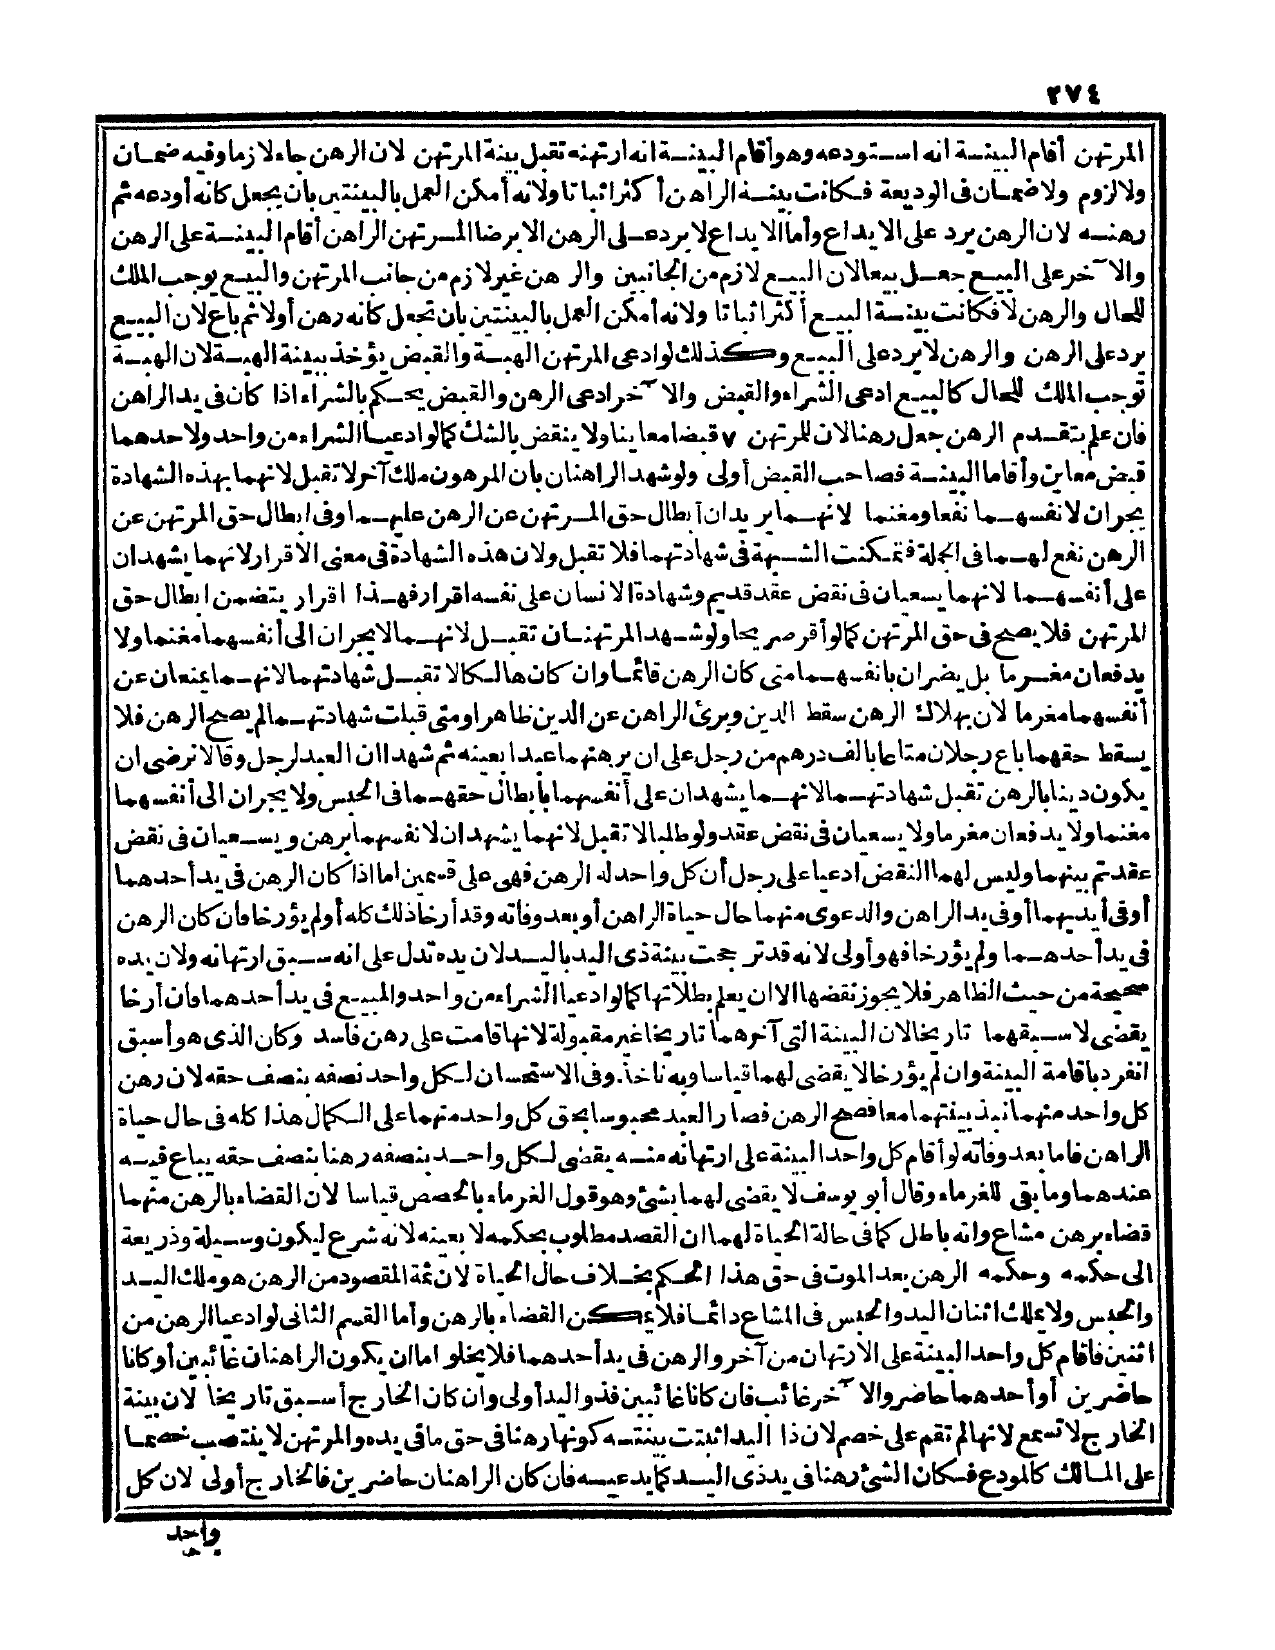 ٢٧٤
المرتهن أقام البينة انه استودعه وهو أقام البينة انه ارتهنه تقبل بينة المرتهن لان الرهن جاء لازما وفيه ضمان
ولا لزوم ولا ضمان فى الوديعة فكانت بينة الراهن أكثر اثباتا ولانه أمكن العمل بالبينتين بأن يجعل كانه أودعه ثم
رهنه لان الرهن يرد على الايداع وأما الايداع لا يرد على الرهن الا برضا المرتهن الراهن أقام البينة على الرهن
والآخر على البيع جعل بيعا لان البيع لازم من الجانبين والرهن غير لازم من جانب المرتهن والبيع يوجب الملك
للحال والرهن لا فكانت بينة البيع أكثر اثباتا ولانه أمكن العمل بالبينتين بان تجعل كانه رهن أولا ثم باع لان البيع
يرد على الرهن والرهن لا يرد على البيع وكذلك لو ادعى المرتهن الهبة والقبض يؤخذ ببينة الهبة لان الهبة
توجب الملك للحال كالبيع ادعى الشراء والقبض والآخر ادعى الرهن والقبض يحكم بالشراء اذا كان فى يد الراهن
فان علم بتقدم الرهن جعل رهنا لان للمرتهن ٧ قبضا معاينا ولا ينقض بالشك كما لو ادعيا الشراء من واحد ولاحدهما
قبض معاين وأقاما البينة فصاحب القبض أولى ولو شهد الراهنان بان المرهون ملك آخر لا تقبل لانهما بهذه الشهادة
يجران لانفسهما نفعا ومغنما لانهما يريدان ابطال حق المرتهن عن الرهن عليهما وفى ابطال حق المرتهن عن
الرهن نفع لهما فى الجملة فتمكنت الشبهة فى شهادتهما فلا تقبل ولان هذه الشهادة فى معنى الاقرار لانهما يشهدان
على أنفسهما لانهما يسعيان فى نقض عقد قديم وشهادة الانسان على نفسه اقرار فهذا اقرار يتضمن ابطال حق
المرتهن فلا يصح فى حق المرتهن كما لو أقر صريحا ولو شهد المرتهنان تقبل لانهما لا يجران الى أنفسهما مغنما ولا
يدفعان مغرما بل يضران بانفسهما متى كان الرهن قائما وان كان هالكا لا تقبل شهادتهما لانهما يمنعان عن
أنفسهما مغرما لان بهلاك الرهن سقط الدين وبرئ الراهن عن الدين ظاهرا ومتى قبلت شهادتهما لم يصح الرهن فلا
يسقط حقهما باع رجلان متاعا بالف درهم من رجل على ان يرهنهما عبدا بعينه ثم شهدا ان العبد لرجل وقالا نرضى ان
يكون دينا بالرهن تقبل شهادتهما لانهما يشهدان على أنفسهما بابطال حقهما فى الحبس ولا يجران الى أنفسهما
مغنما ولا يدفعان مغرما ولا يسعيان فى نقض عقد ولو طلبا لا تقبل لانهما يشهدان لانفسهما برهن ويسعيان فى نقض
عقد تم بينهما وليس لهما النقض ادعيا على رجل أن كل واحد له الرهن فهى على قسمين اما اذا كان الرهن فى يد أحدهما
أو فى أيديهما أو فى يد الراهن والدعوى منهما حال حياة الراهن أو بعد وفاته وقد أرخا ذلك كله أو لم يؤرخا فان كان الرهن
فى يد أحدهما ولم يؤرخا فهو أولى لانه قد ترجحت بينة ذى اليد باليد لان يده تدل على انه سبق ارتهانه ولان يده
صحيحة من حيث الظاهر فلا يجوز نقضها الا ان يعلم بطلانها كما لو ادعيا الشراء من واحد والمبيع فى يد أحدهما فان أرخا
يقضى لاسبقهما تاريخا لان البينة التى آخرهما تاريخا غير مقبولة لانها قامت على رهن فاسد وكان الذى هو أسبق
انفرد باقامة البينة وان لم يؤرخا لا يقضى لهما قياسا وبه ناخذ. وفى الاستحسان لكل واحد نصفه بنصف حقه لان رهن
كل واحد منهما نبذ بينتهما معا فصح الرهن فصار العبد محبوسا بحق كل واحد منهما على الكمال هذا كله فى حال حياة
الراهن فاما بعد وفاته لو أقام كل واحد البينة على ارتهانه منه يقضى لكل واحد بنصفه رهنا بنصف حقه يباع فيه
عندهما وما بقى للغرماء وقال أبو يوسف لا يقضى لهما بشئ وهو قول الغرماء بالحصص قياسا لان القضاء بالرهن منهما
قضاء برهن مشاع وانه باطل كما فى حالة الحياة لهما ان القصد مطلوب بحكمه لا بعينه لانه شرع ليكون وسيلة وذريعة
الى حكمه وحكمه الرهن بعد الموت فى حق هذا الحكم بخلاف حال الحياة لان ثمة المقصود من الرهن هو ملك اليد
والحبس ولا يملك اثنان اليد والحبس فى المشاع دائما فلا يمكن القضاء بالرهن وأما القسم الثانى لو ادعيا الرهن من
اثنين فاقام كل واحد البينة على الارتهان من آخر والرهن فى يد أحدهما فلا يخلو اما ان يكون الراهنان غائبين أو كانا
حاضرين أو أحدهما حاضر والآخر غائب فان كانا غائبين فذو اليد أولى وان كان الخارج أسبق تاريخا لان بينة
الخارج لا تسمع لانها لم تقم على خصم لان ذا اليد اثبتت بينته كونها رهنا فى حق ما فى يده والمرتهن لا ينتصب خصما
على المالك كالمودع فكان الشئ رهنا فى يد ذى اليد كما يدعيه فان كان الراهنان حاضرين فالخارج أولى لان كل
واحد